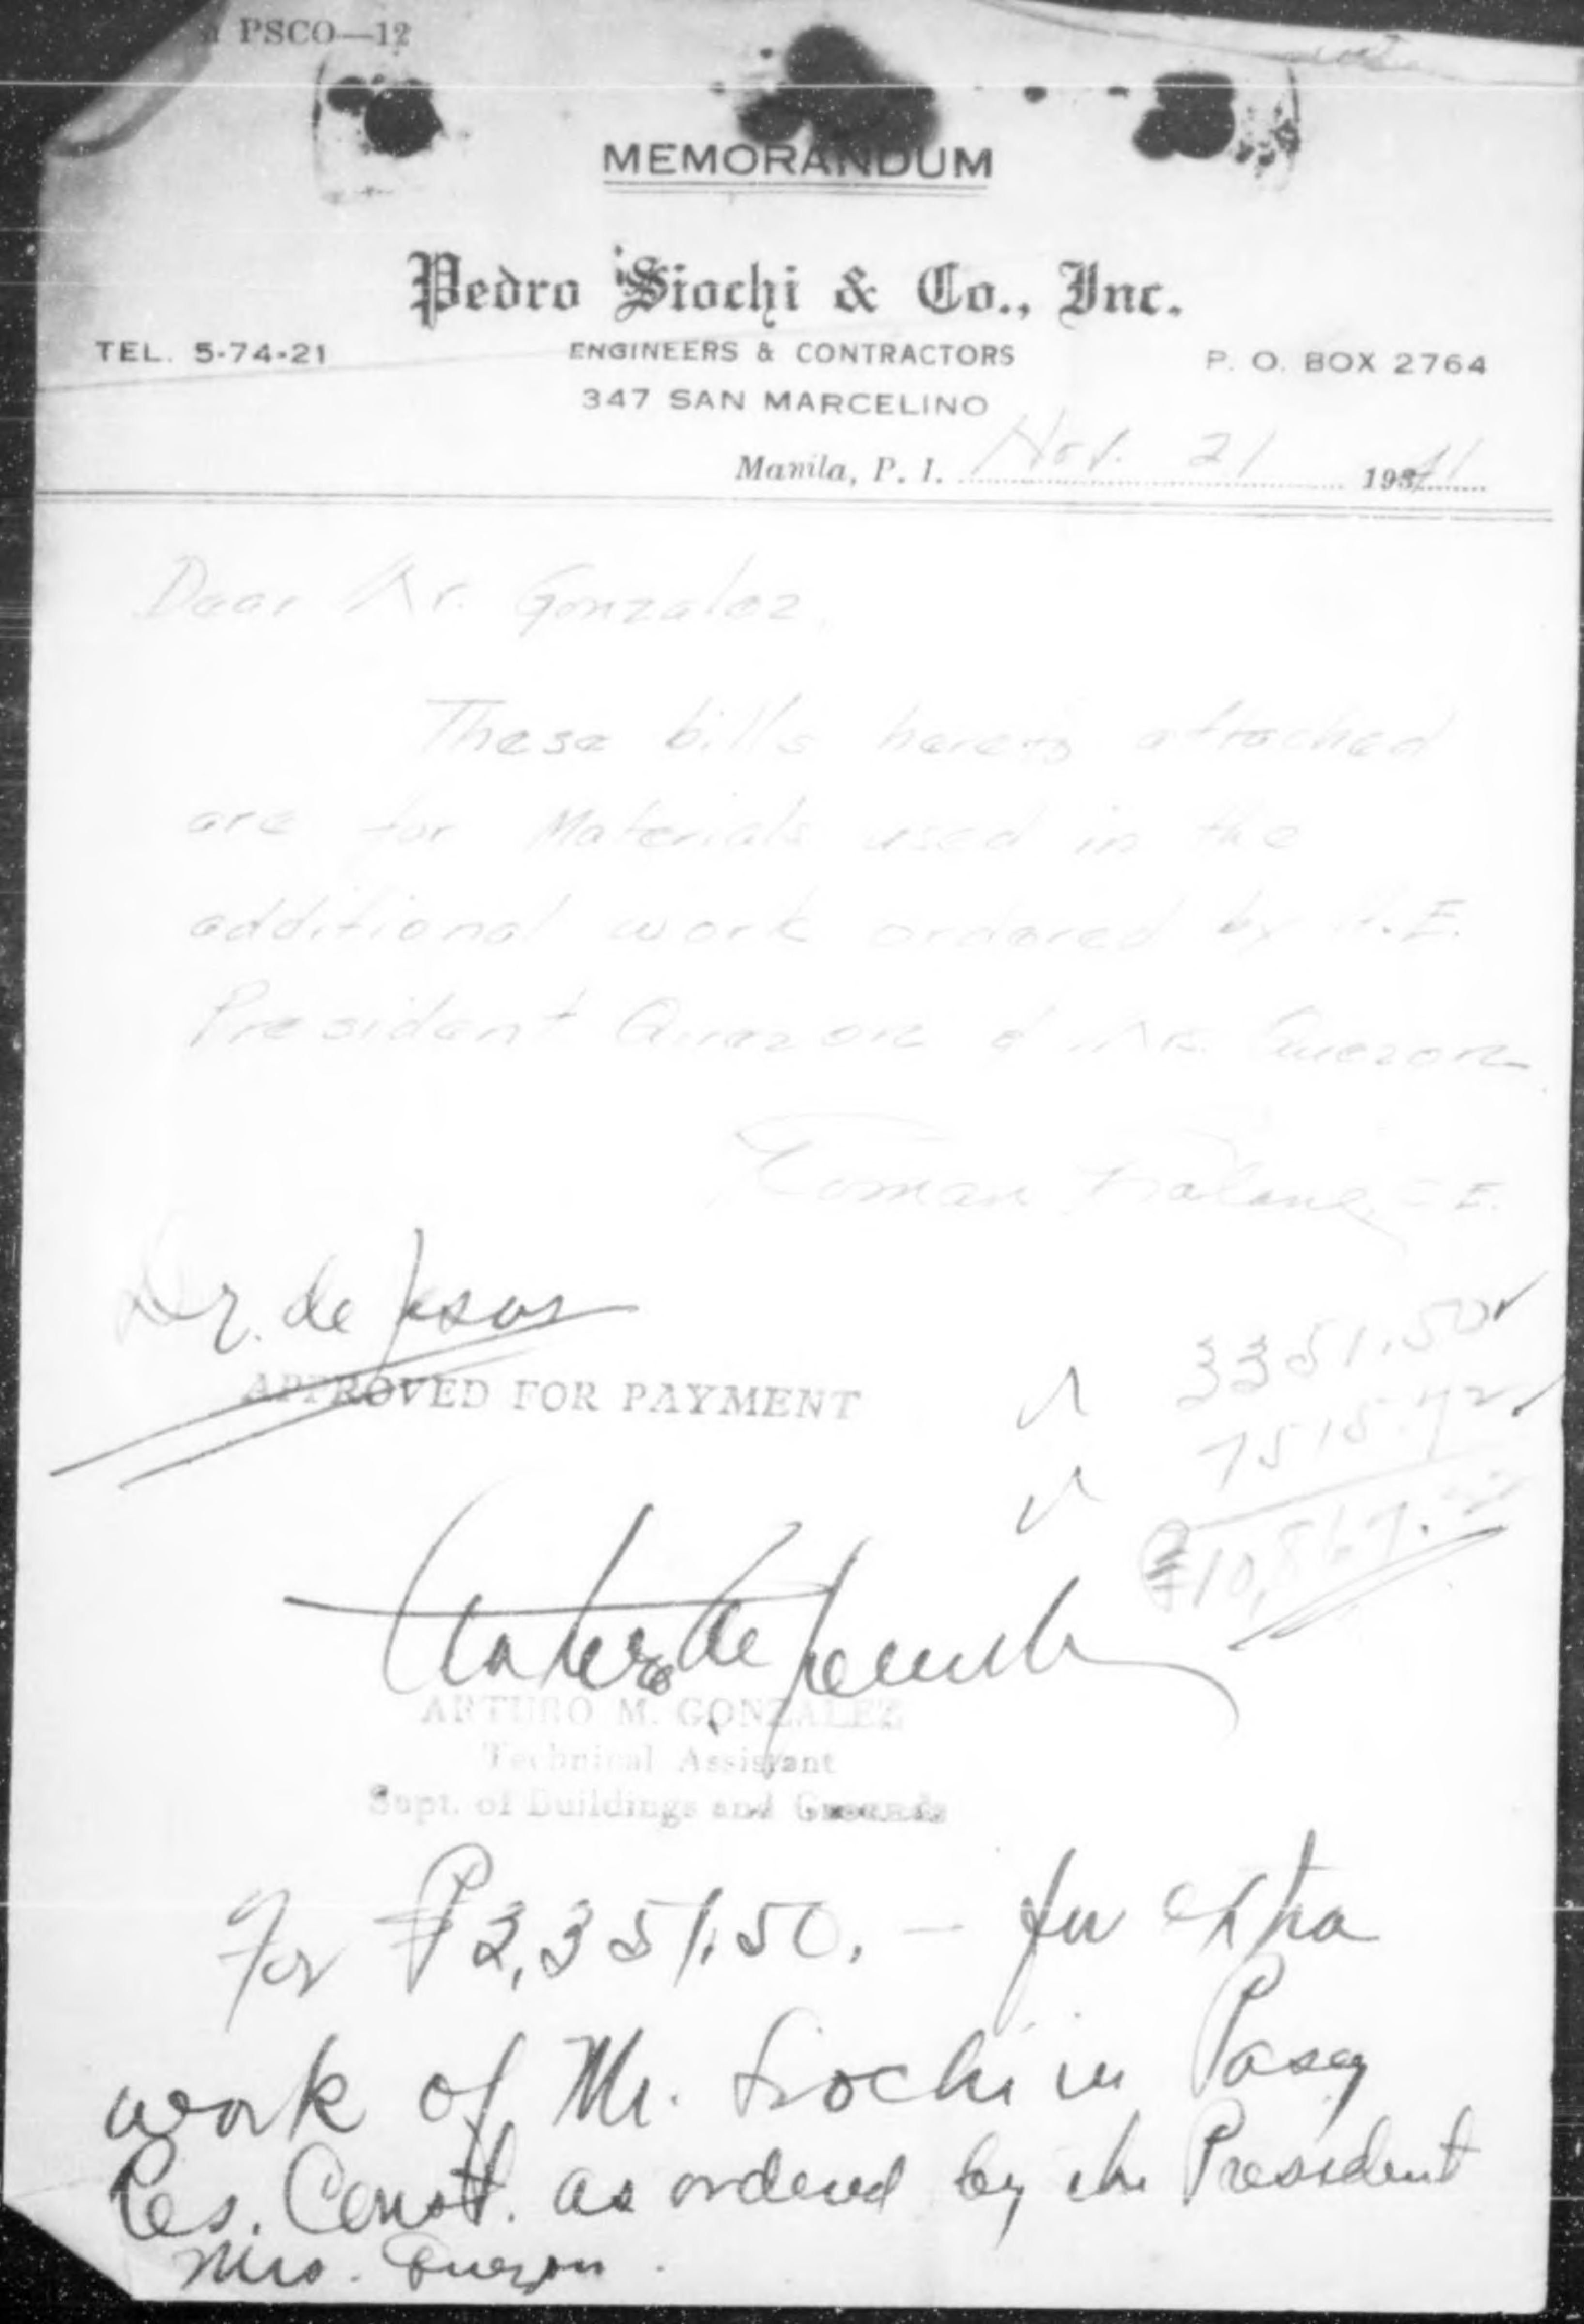 PSCO—12
MEMORANDUM
Pedro Siochi & Co., Inc.
TEL. 5-74-21
ENGINEERS & CONTRACTORS
P. O. BOX 2764
347 SAN MARCELINO
Manila, P. I. Nov. 21 1941
Dear Mr. Gonzalez,
These bills hereto attached
are for Materials used in the
additional work ordered by H.E.
President Quezon & Mrs. Quezon
Roman C.E.
Dr. de Jesus
3351.50
APPROVED FOR PAYMENT
7515.72
₱10,867.22
ARTURO M. GONZALEZ
Technical Assistant
Supt. of Buildings and Grounds
For ₱3,351.50. — for extra
work of Mr. Siochi in Pasay
Res. Const. as ordered by the President
Mrs. Quezon.